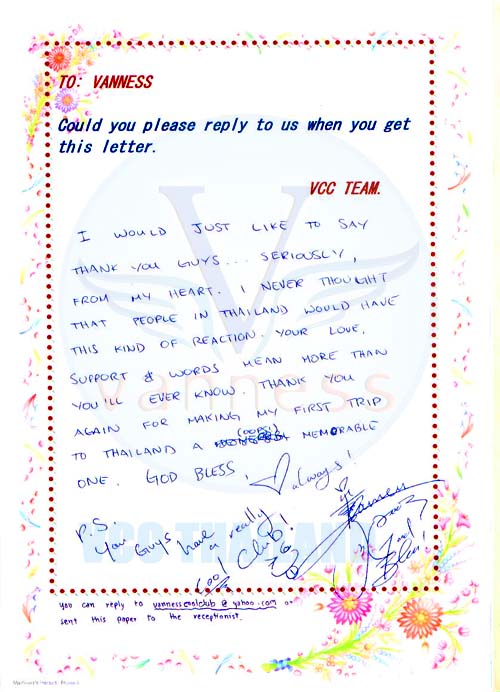 TO: VANNESS
Could you please reply to us when you get
this letter.
VCC TEAM.
I WOULD JUST LIKE TO SAY
THANK YOU GUYS... SERIOUSLY,
FROM MY HEART. I NEVER THOUGHT
THAT PEOPLE IN THAILAND WOULD HAVE
THIS KIND OF REACTION. YOUR LOVE,
SUPPORT & WORDS MEAN MORE THAN
YOU'LL EVER KNOW. THANK YOU
AGAIN FOR MAKING MY FIRST TRIP
(OOPS!)
TO THAILAND A MEMORABLE
ONE. GOD BLESS,
always!
P.S.
You Guys have a really
cool club!
Vanness
God
Bless!
V
vanness
VCC THAILAND
you can reply to vannessccnlclub @ yahoo.com or
sent this paper to the receptionist.